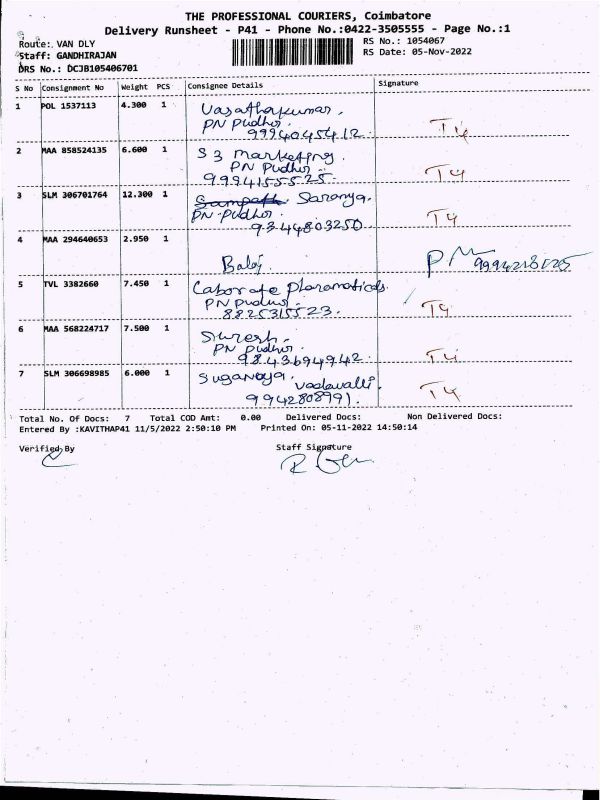 THE PROFESSIONAL COURIERS, Coimbatore
Delivery Runsheet - P41 - Phone No.:0422-3505555 - Page No.:1
Route: VAN DLY
RS No.: 1054067
Staff: GANDHIRAJAN
RS Date: 05-Nov-2022
DRS No.: DCJB105406701
S No Consignment No Weight PCS Consignee Details Signature
1 POL 1537113 4.300 1 Vasathakumar.
PN Pudhur.
9994045412. T4
2 MAA 858524135 6.600 1 S 3 marketing.
PN Pudhur
9994155525. T4
3 SLM 306701764 12.300 1 Saranya.
PN-Pudhur.
9344803250 T4
4 MAA 294640653 2.950 1
Balaj.
5 TVL 3382660 7.450 1 Laborate
PN Pudhur
8825315523. T4
6 MAA 568224717 7.500 1 Suresh.
PN Pudhur.
9843694942. T4
7 SLM 306698985 6.000 1 Suganya. Vadavalli.
9942808991. T4
Total No. Of Docs: 7 Total COD Amt: 0.00 Delivered Docs: Non Delivered Docs:
Entered By :KAVITHAP41 11/5/2022 2:50:10 PM Printed On: 05-11-2022 14:50:14
Verified By Staff Signature